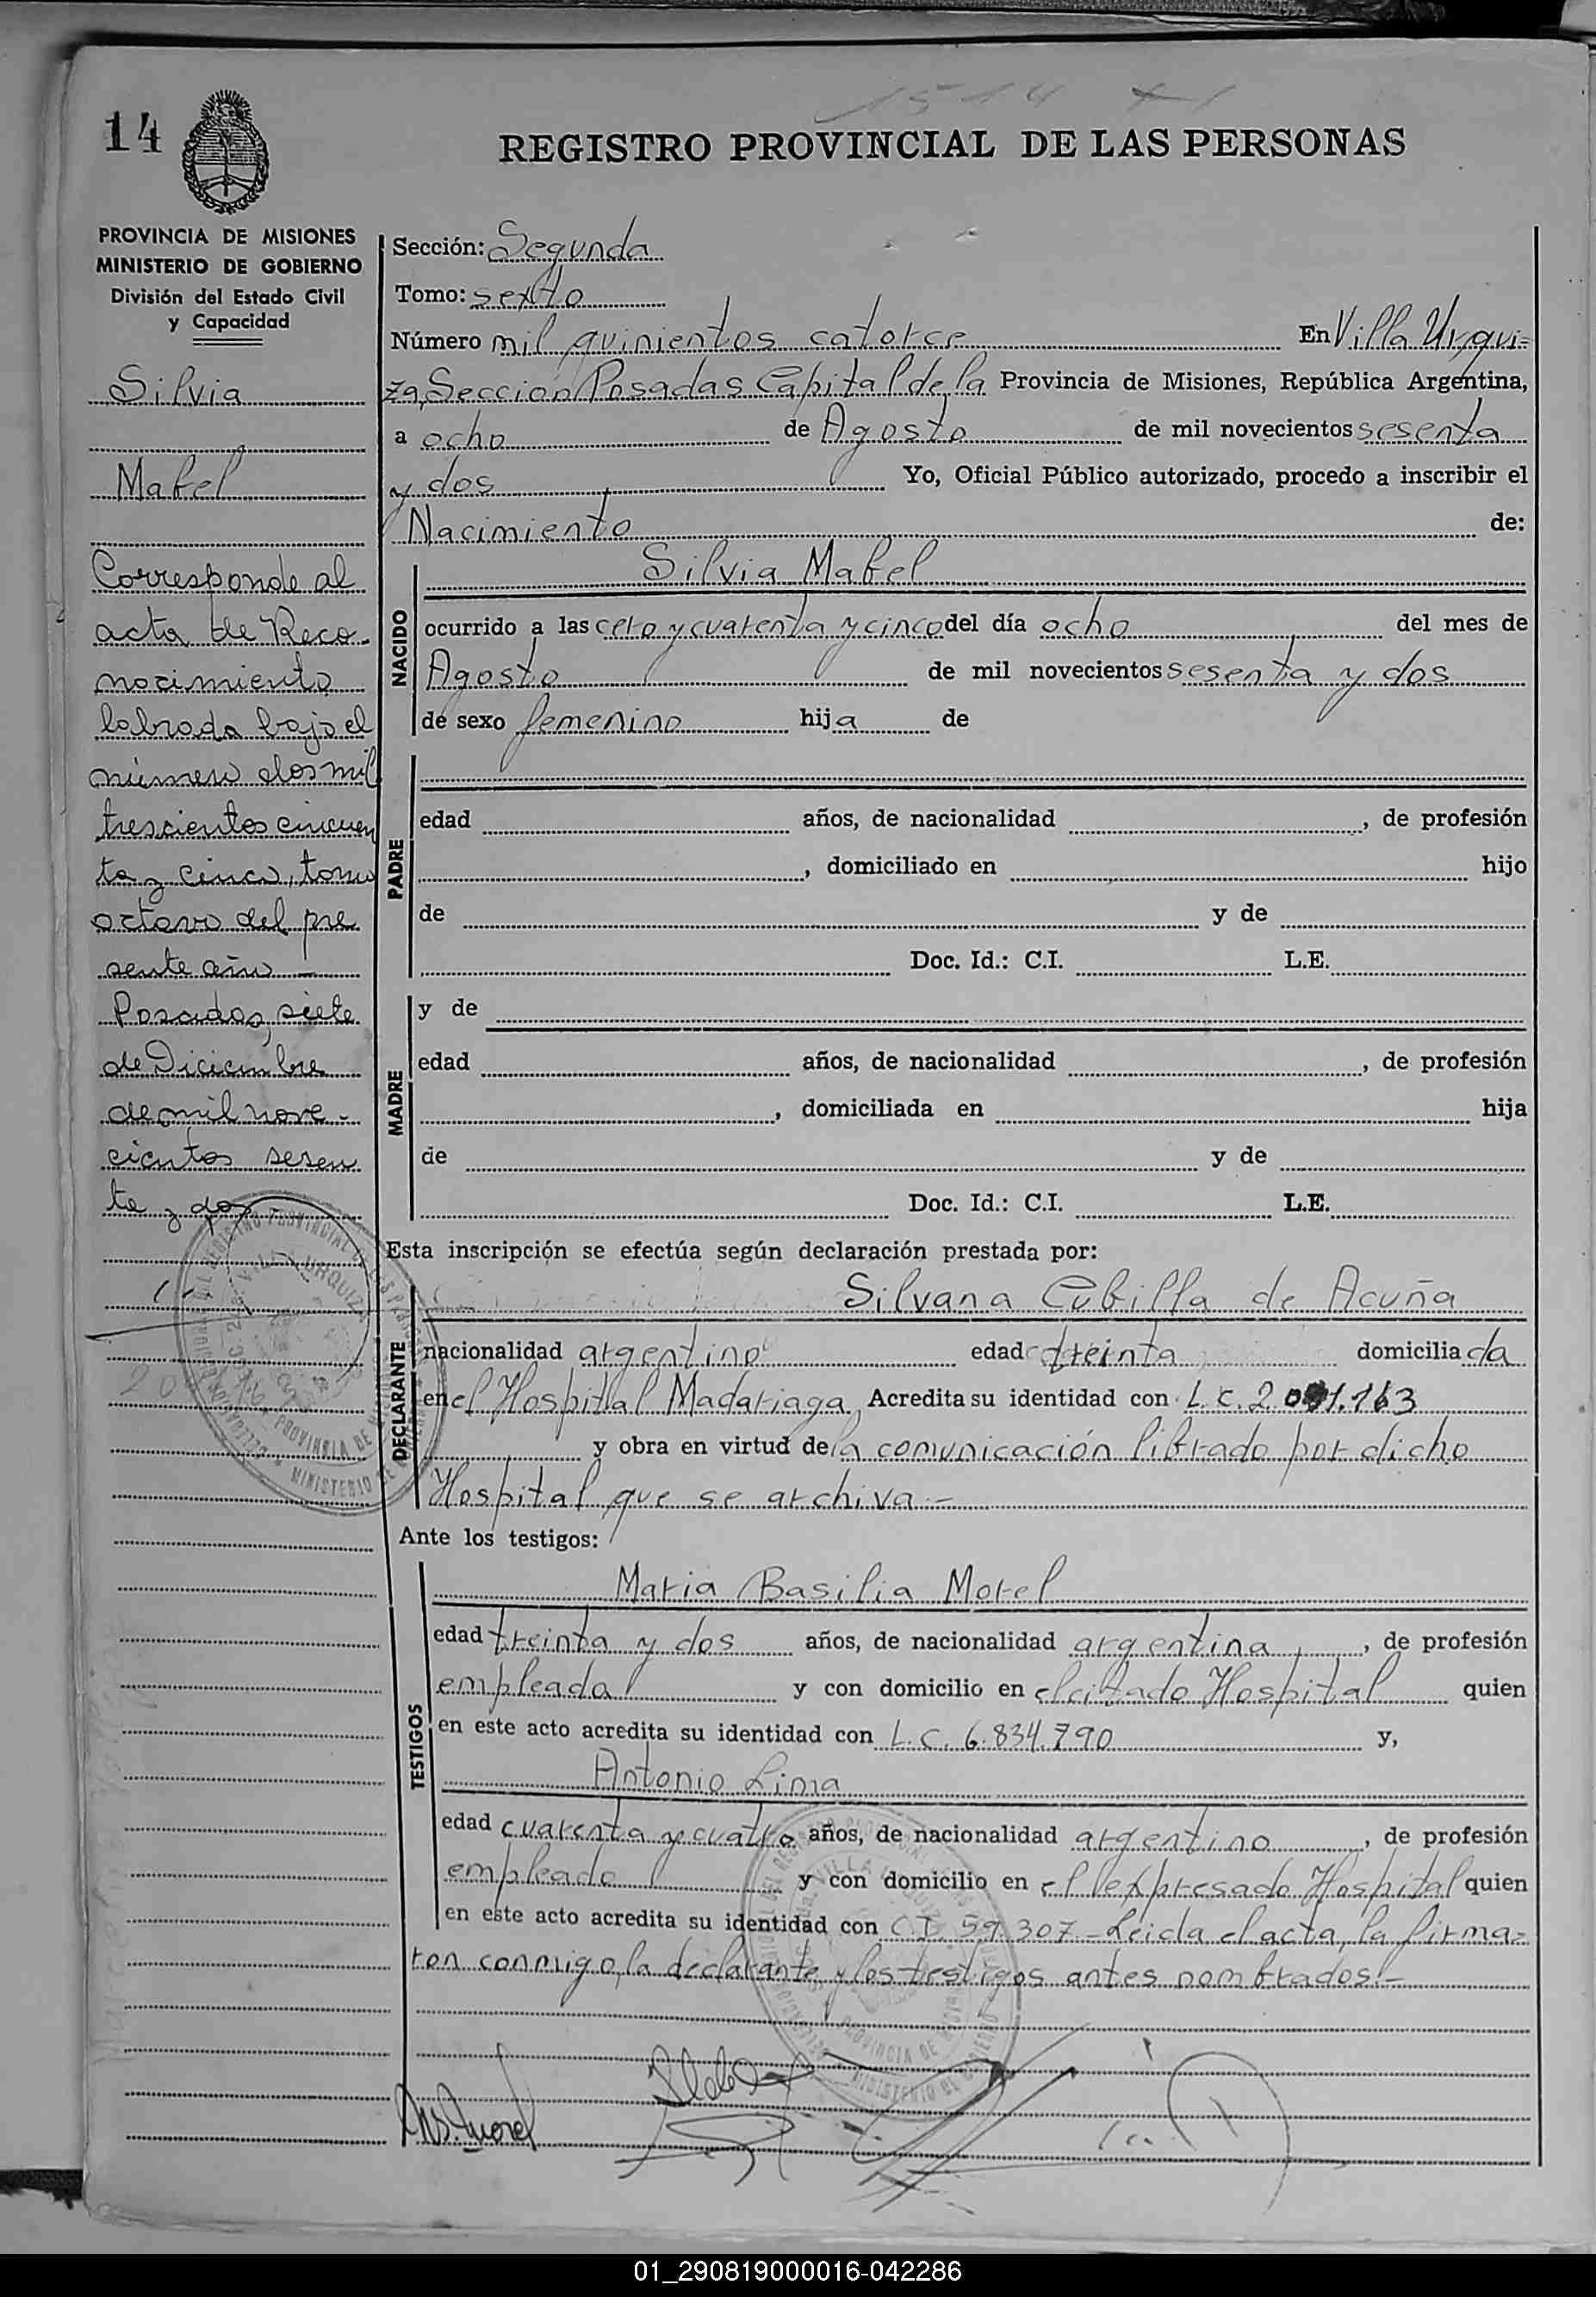 1514
14
REGISTRO PROVINCIAL DE LAS PERSONAS
PROVINCIA DE MISIONES
MINISTERIO DE GOBIERNO
División del Estado Civil
y Capacidad
Silvia
Mabel
Corresponde al
acta de Reco-
nocimiento
labrada bajo el
número dos mil
trescientos cincuen
ta y cinco, tomo
octavo del pre
sente año -
Posadas, siete
de Diciembre
de mil nove-
cientos sesen
ta y dos -
Sección: Segunda
Tomo: sexto
Número mil quinientos catorce En Villa Urqui=
za, Sección Posadas Capital de la Provincia de Misiones, República Argentina,
a ocho de Agosto de mil novecientos sesenta
y dos Yo, Oficial Público autorizado, procedo a inscribir el
Nacimiento de:
Silvia Mabel
NACIDO
ocurrido a las cero y cuarenta y cinco del día ocho del mes de
Agosto de mil novecientos sesenta y dos
de sexo femenino hija de
PADRE
edad años, de nacionalidad , de profesión
, domiciliado en hijo
de y de
Doc. Id.: C.I. L.E.
MADRE
y de
edad años, de nacionalidad , de profesión
, domiciliada en hija
de y de
Doc. Id.: C.I. L.E.
Esta inscripción se efectúa según declaración prestada por:
DECLARANTE
Silvana Cubilla de Acuña
nacionalidad argentina edad treinta domiciliada
en el Hospital Madariaga Acredita su identidad con L.C. 2.0 1.163
y obra en virtud de la comunicación librado por dicho
Hospital que se archiva.-
Ante los testigos:
TESTIGOS
Maria Basilia Morel
edad treinta y dos años, de nacionalidad argentina, de profesión
empleada y con domicilio en el citado Hospital quien
en este acto acredita su identidad con L.C. 6.834.790 y,
Antonio Lima
edad cuarenta y cuatro años, de nacionalidad argentino, de profesión
empleado y con domicilio en el expresado Hospital quien
en este acto acredita su identidad con C.I. 59.307 - Leida el acta, la firma=
ron conmigo, la declarante y los testigos antes nombrados.-
01_290819000016-042286